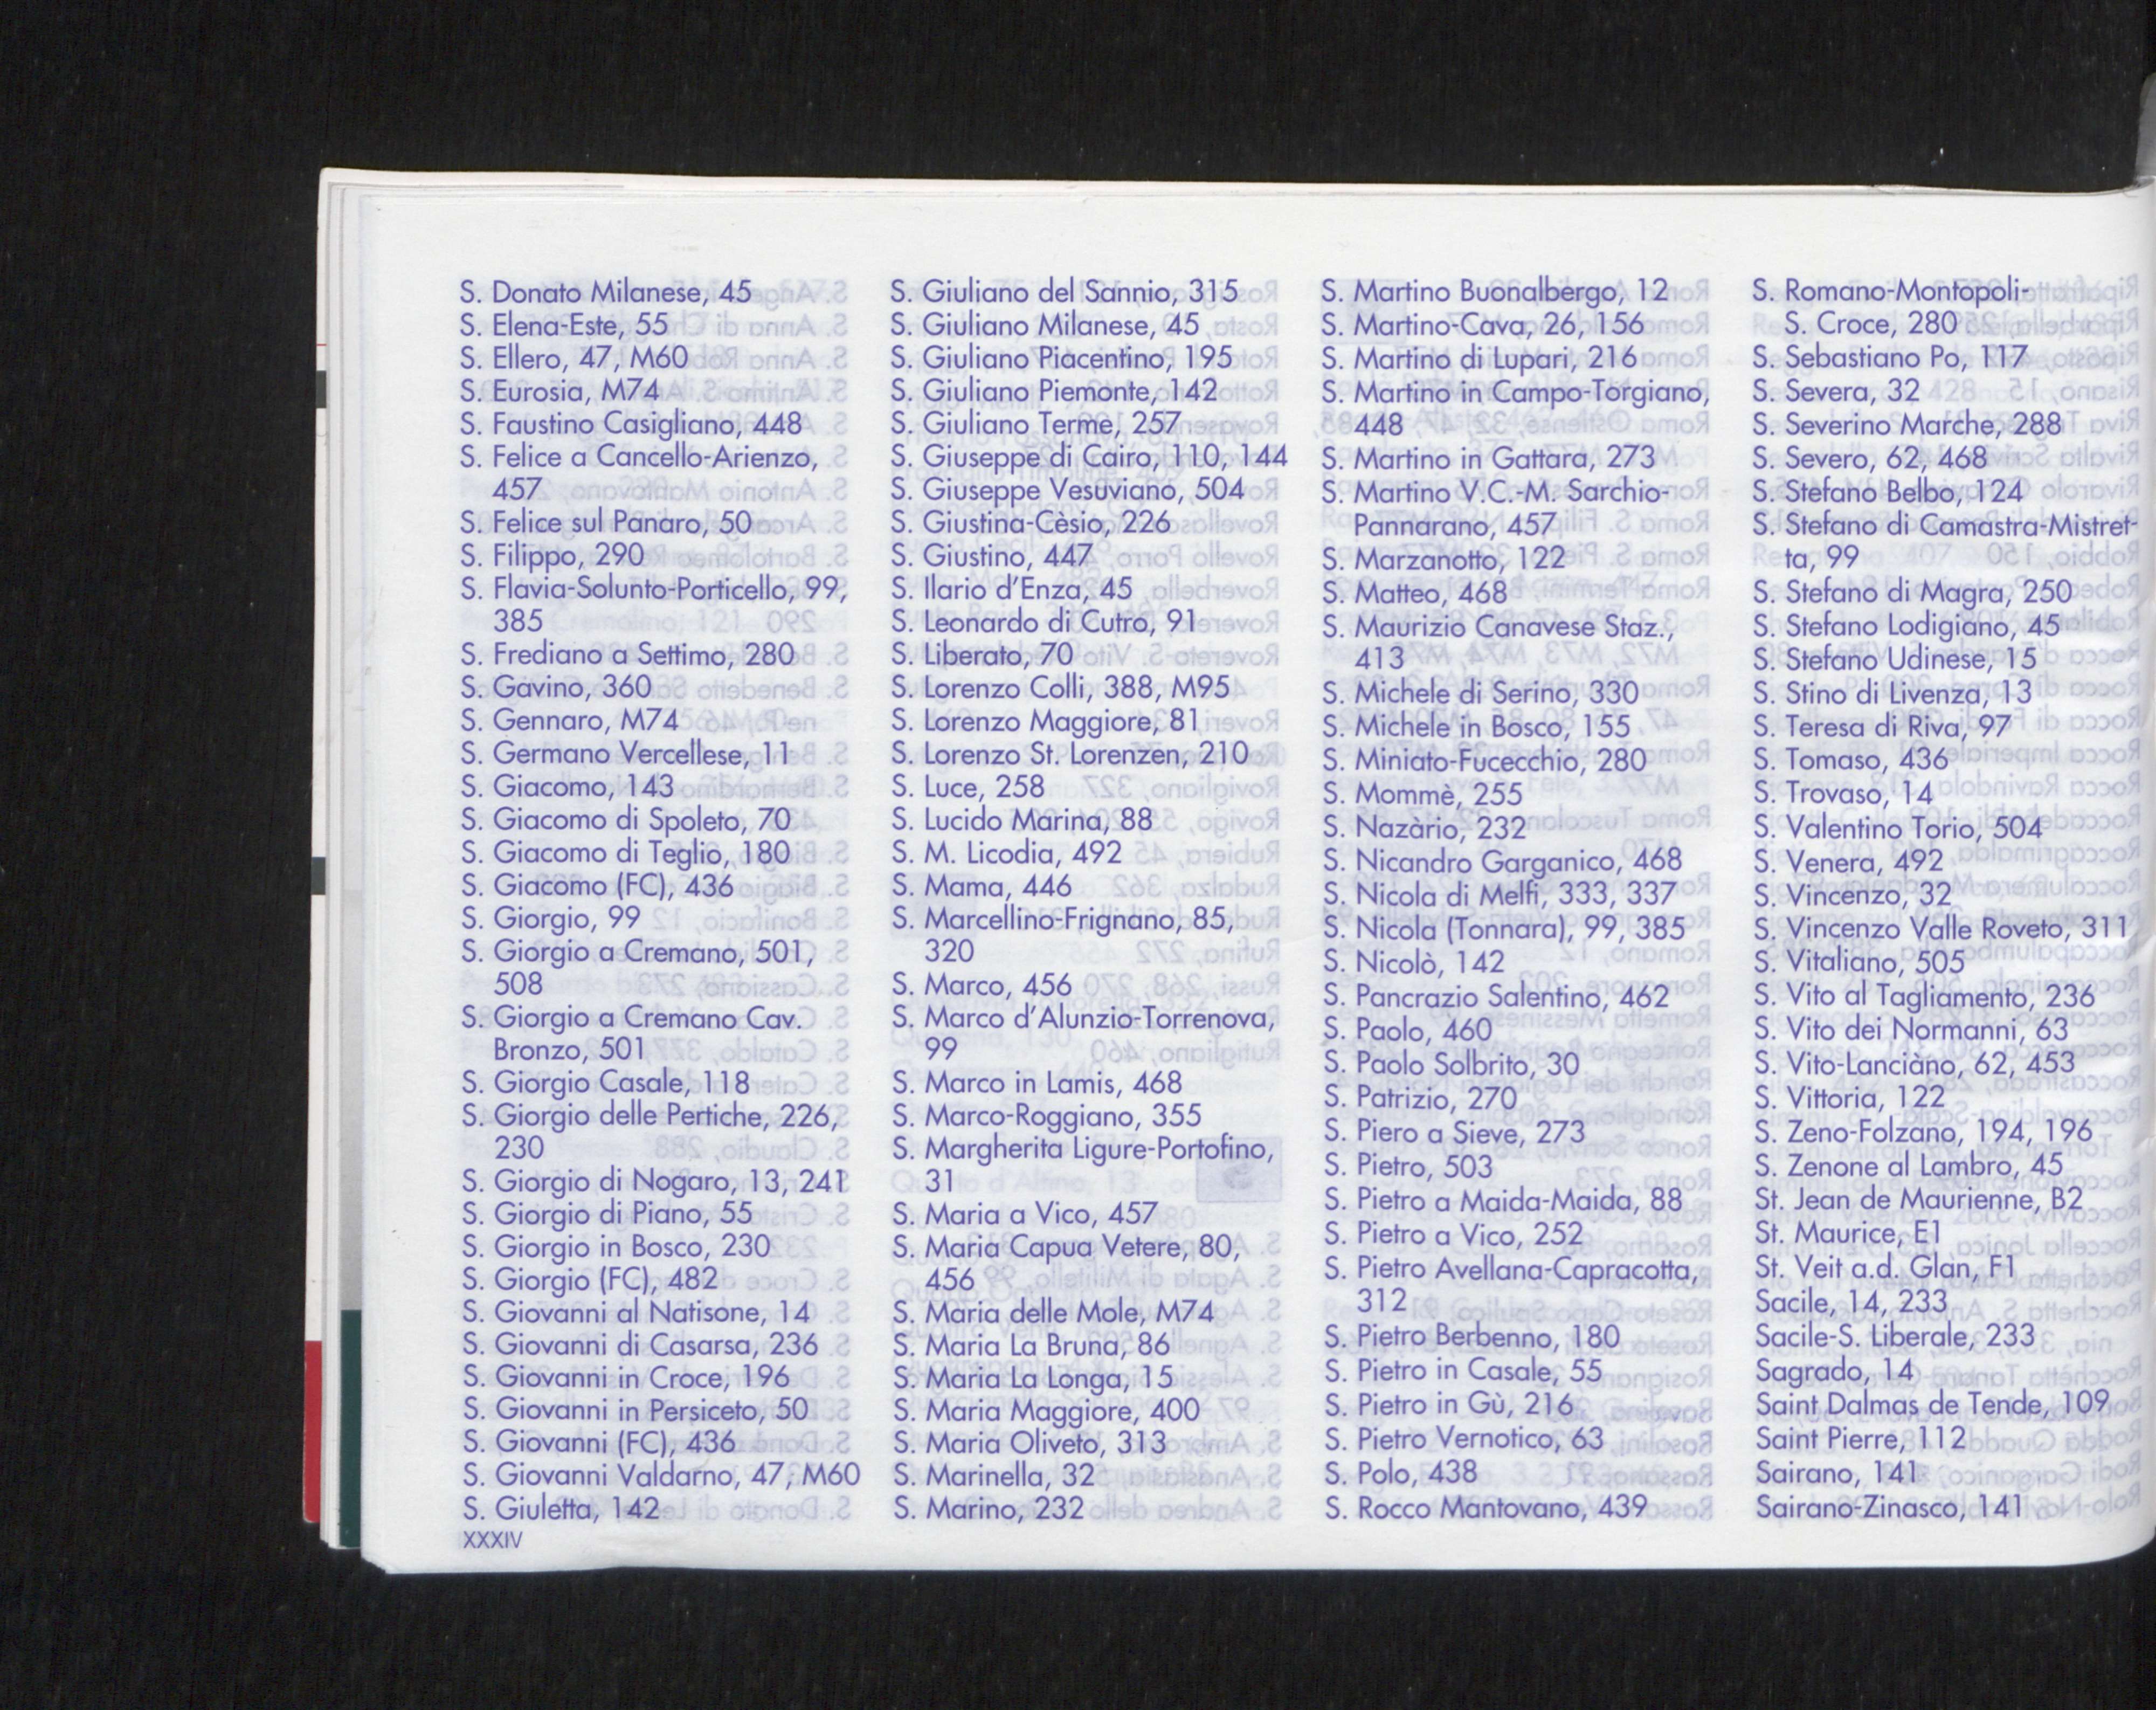 S. Donato Milanese, 45
S. Elena-Este, 55
S. Ellero, 47, M60
S. Eurosia, M74
S. Faustino Casigliano, 448
S. Felice a Cancello-Arienzo,
457
S. Felice sul Panaro, 50
S. Filippo, 290
S. Flavia-Solunto-Porticello, 99,
385
S. Frediano a Settimo, 280
S. Gavino, 360
S. Gennaro, M74
S. Germano Vercellese, 11
S. Giacomo, 143
S. Giacomo di Spoleto, 70
S. Giacomo di Teglio, 180
S. Giacomo (FC), 436
S. Giorgio, 99
S. Giorgio a Cremano, 501,
508
S. Giorgio a Cremano Cav.
Bronzo, 501
S. Giorgio Casale, 118
S. Giorgio delle Pertiche, 226,
230
S. Giorgio di Nogaro, 13, 241
S. Giorgio di Piano, 55
S. Giorgio in Bosco, 230
S. Giorgio (FC), 482
S. Giovanni al Natisone, 14
S. Giovanni di Casarsa, 236
S. Giovanni in Croce, 196
S. Giovanni in Persiceto, 50
S. Giovanni (FC), 436
S. Giovanni Valdarno, 47, M60
S. Giuletta, 142
XXXIV
S. Giuliano del Sannio, 315
S. Giuliano Milanese, 45
S. Giuliano Piacentino, 195
S. Giuliano Piemonte, 142
S. Giuliano Terme, 257
S. Giuseppe di Cairo, 110, 144
S. Giuseppe Vesuviano, 504
S. Giustina-Cèsio, 226
S. Giustino, 447
S. Ilario d'Enza, 45
S. Leonardo di Cutro, 91
S. Liberato, 70
S. Lorenzo Colli, 388, M95
S. Lorenzo Maggiore, 81
S. Lorenzo St. Lorenzen, 210
S. Luce, 258
S. Lucido Marina, 88
S. M. Licodia, 492
S. Mama, 446
S. Marcellino-Frignano, 85,
320
S. Marco, 456
S. Marco d'Alunzio-Torrenova,
99
S. Marco in Lamis, 468
S. Marco-Roggiano, 355
S. Margherita Ligure-Portofino,
31
S. Maria a Vico, 457
S. Maria Capua Vetere, 80,
456
S. Maria delle Mole, M74
S. Maria La Bruna, 86
S. Maria La Longa, 15
S. Maria Maggiore, 400
S. Maria Oliveto, 313
S. Marinella, 32
S. Marino, 232
S. Martino Buonalbergo, 12
S. Martino-Cava, 26, 156
S. Martino di Lupari, 216
S. Martino in Campo-Torgiano,
448
S. Martino in Gattara, 273
S. Martino V.C.-M. Sarchio-
Pannarano, 457
S. Marzanotto, 122
S. Matteo, 468
S. Maurizio Canavese Staz.,
413
S. Michele di Serino, 330
S. Michele in Bosco, 155
S. Miniato-Fucecchio, 280
S. Mommè, 255
S. Nazàrio, 232
S. Nicandro Garganico, 468
S. Nicola di Melfi, 333, 337
S. Nicola (Tonnara), 99, 385
S. Nicolò, 142
S. Pancrazio Salentino, 462
S. Paolo, 460
S. Paolo Solbrito, 30
S. Patrizio, 270
S. Piero a Sieve, 273
S. Pietro, 503
S. Pietro a Maida-Maida, 88
S. Pietro a Vico, 252
S. Pietro Avellana-Capracotta,
312
S. Pietro Berbenno, 180
S. Pietro in Casale, 55
S. Pietro in Gù, 216
S. Pietro Vernotico, 63
S. Polo, 438
S. Rocco Mantovano, 439
S. Romano-Montopoli-
S. Croce, 280
S. Sebastiano Po, 117
S. Severa, 32
S. Severino Marche, 288
S. Severo, 62, 468
S. Stefano Belbo, 124
S. Stefano di Camastra-Mistret-
ta, 99
S. Stefano di Magra, 250
S. Stefano Lodigiano, 45
S. Stefano Udinese, 15
S. Stino di Livenza, 13
S. Teresa di Riva, 97
S. Tomaso, 436
S. Trovaso, 14
S. Valentino Torio, 504
S. Venera, 492
S. Vincenzo, 32
S. Vincenzo Valle Roveto, 311
S. Vitaliano, 505
S. Vito al Tagliamento, 236
S. Vito dei Normanni, 63
S. Vito-Lanciàno, 62, 453
S. Vittoria, 122
S. Zeno-Folzano, 194, 196
S. Zenone al Lambro, 45
St. Jean de Maurienne, B2
St. Maurice, E1
St. Veit a.d. Glan, F1
Sacile, 14, 233
Sacile-S. Liberale, 233
Sagrado, 14
Saint Dalmas de Tende, 109
Saint Pierre, 112
Sairano, 141
Sairano-Zinasco, 141